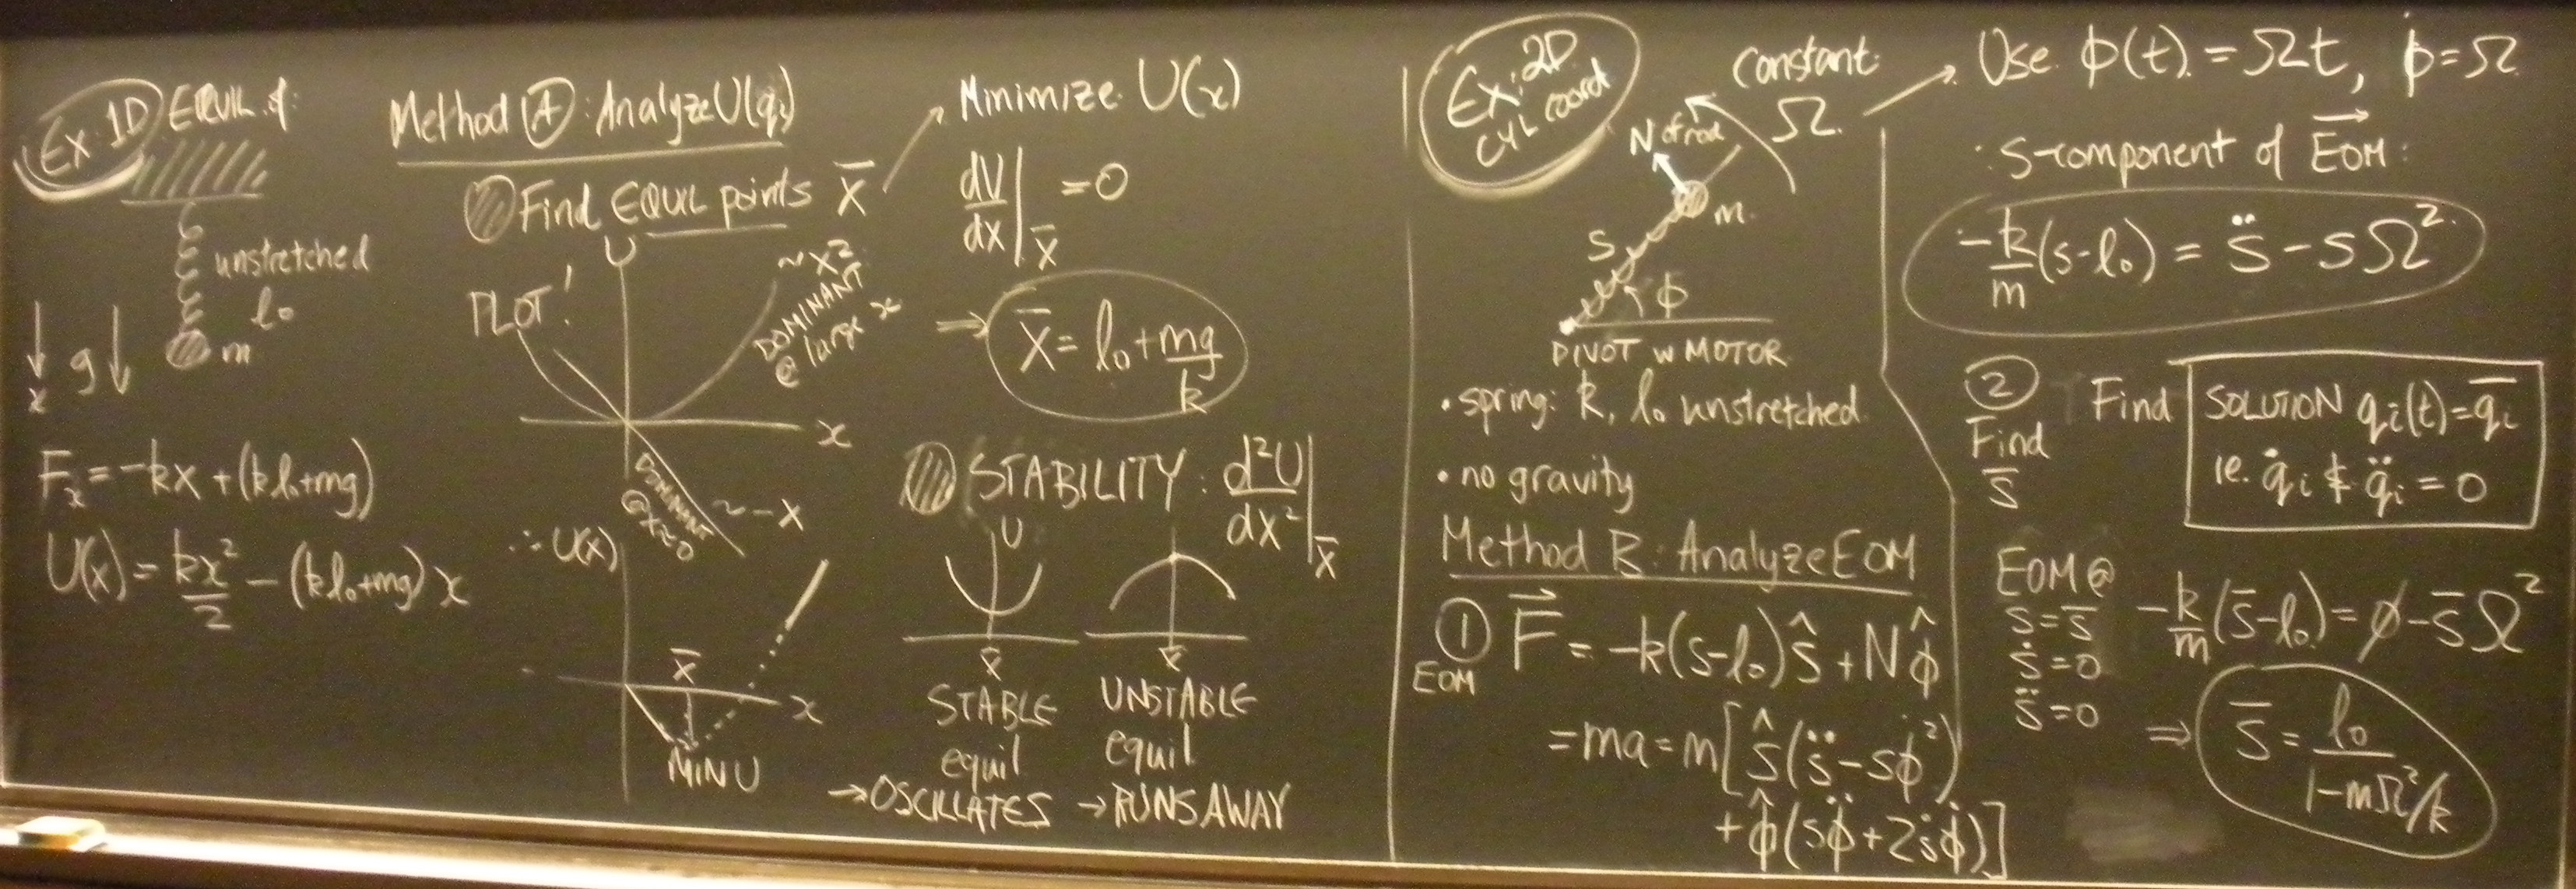 Ex. 1D EQUIL of:
unstretched
l₀
m
x
g
Fₓ = -kx + (kl₀+mg)
U(x) = kx²/2 - (kl₀+mg) x
Method A : Analyze U(qᵢ)
Find EQUIL points x̄
U
PLOT!
~ x²
DOMINANT
@ large x
x
DOMINANT
@ x≈0
~ -x
∴ U(x)
x̄
x
MIN U
Minimize U(x)
dU/dx|x̄ = 0
⇒ x̄ = l₀ + mg/k
STABILITY : d²U/dx²|x̄
U
x̄ x̄
STABLE
equil
→OSCILLATES
UNSTABLE
equil
→RUNS AWAY
Ex: 2D
CYL coord
constant
Ω
N of rod
m
s
ϕ
PIVOT w MOTOR
• spring: k, l₀ unstretched
• no gravity
Method B : Analyze EOM
① F⃗ = -k(s-l₀)ŝ + Nϕ̂
EOM
= ma = m[ŝ(s̈ - sϕ̇²)
+ ϕ̂(sϕ̈ + 2ṡϕ̇)]
→ Use ϕ(t) = Ωt, ϕ̇ = Ω
• s-component of EOM⃗ :
-k/m(s-l₀) = s̈ - sΩ²
②
Find
s̄
Find
SOLUTION qᵢ(t) = q̄ᵢ
ie. q̇ᵢ & q̈ᵢ = 0
EOM @
s = s̄
ṡ = 0
s̈ = 0
-k/m(s̄-l₀) = 0 - s̄Ω²
⇒ s̄ = l₀/(1-mΩ²/k)